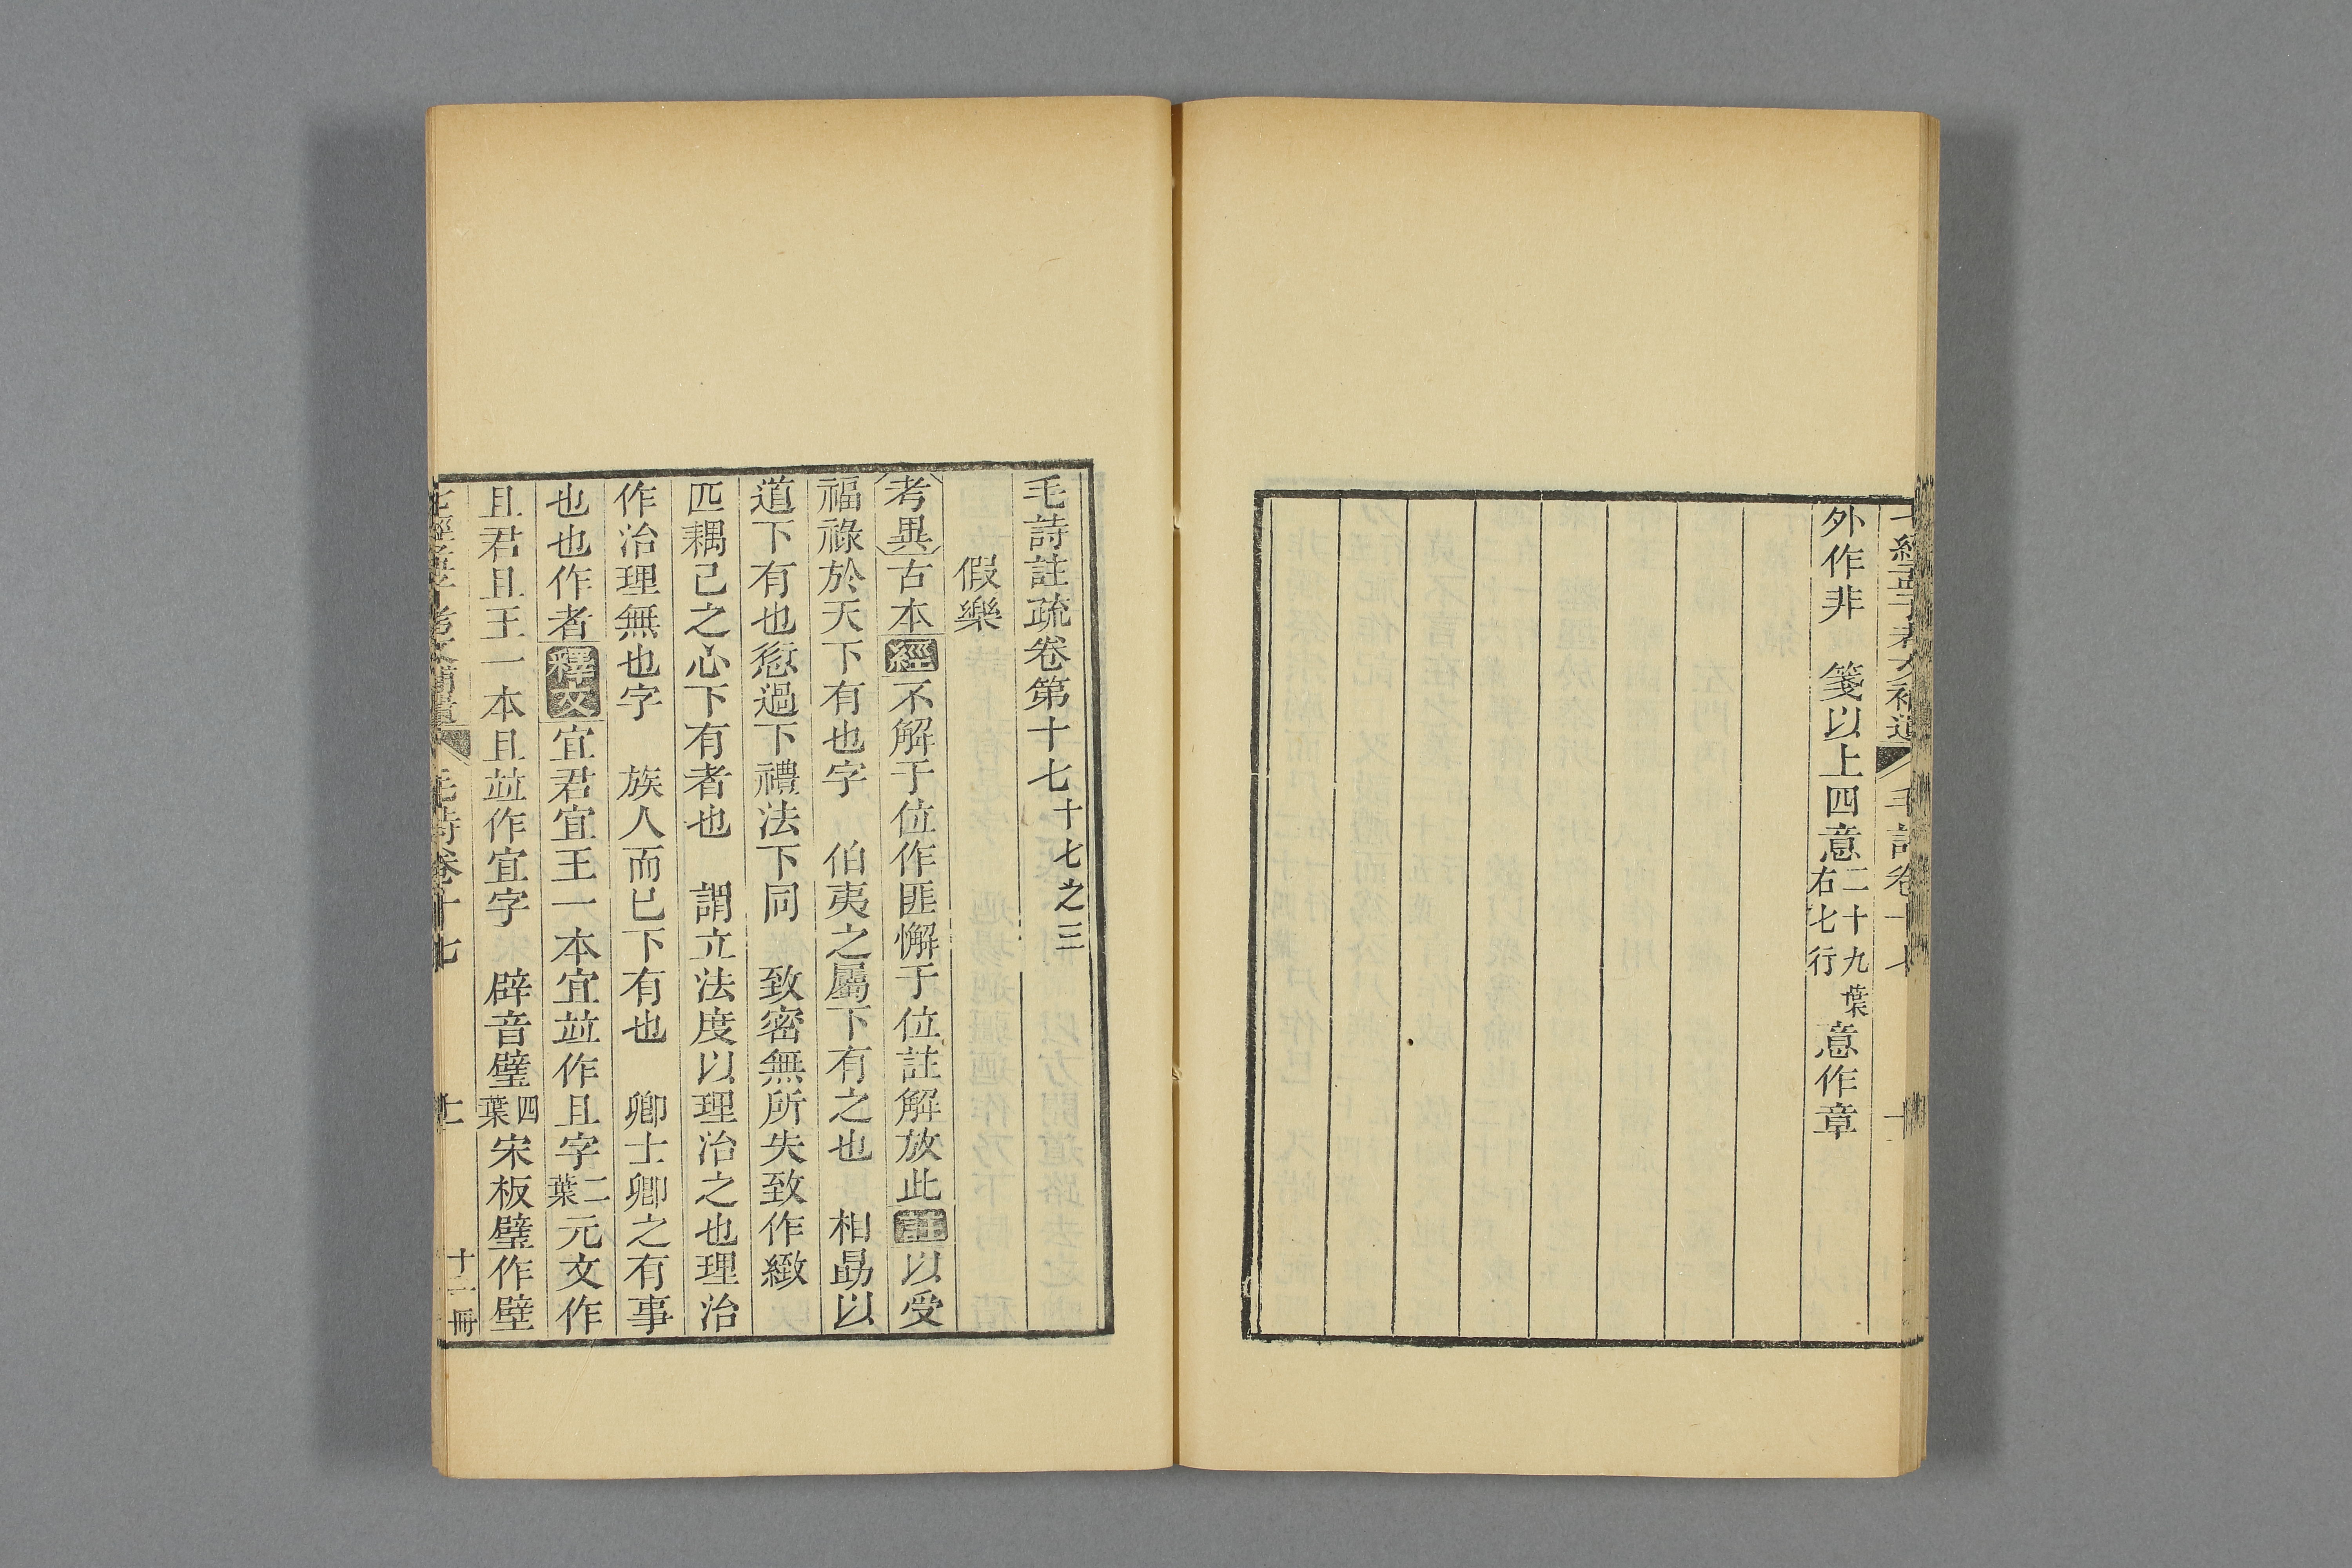 外作非　箋以上四意二十九葉右七行意作章
毛詩註疏卷第十七十七之三
假樂
考異古本經不解于位作匪懈于位註解放此註以受
福祿於天下有也字　伯夷之屬下有之也　相勗以
道下有也愆過下禮法下同　致密無所失致作緻
匹耦己之心下有者也　謂立法度以理治之也理治
作治理無也字　族人而已下有也　卿士卿之有事
也也作者釋文宜君宜王一本宜並作且字二葉元文作
且君且王一本且並作宜字　辟音璧四葉宋板璧作壁
七經孟子考文補遺　毛詩卷十七　十一　十二冊